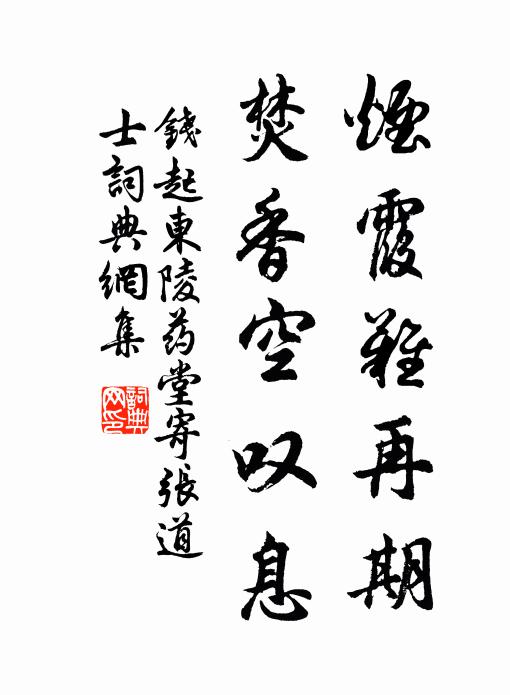 煙霞難再期
焚香空叹息
錢起東陵药堂寄張道
士詞典網集
詞典
网印